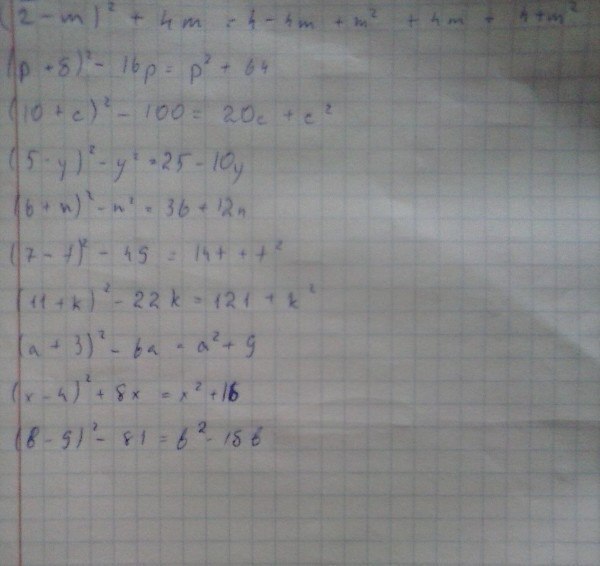 (2 - m)² + 4m = 4 - 4m + m² + 4m = 4 + m²
(p + 8)² - 16p = p² + 64
(10 + c)² - 100 = 20c + c²
(5 - y)² - y² = 25 - 10y
(6 + n)² - n² = 36 + 12n
(7 - t)² - 49 = 14t + t²
(11 + k)² - 22k = 121 + k²
(a + 3)² - 6a = a² + 9
(x - 4)² + 8x = x² + 16
(b - 9)² - 81 = b² - 18b